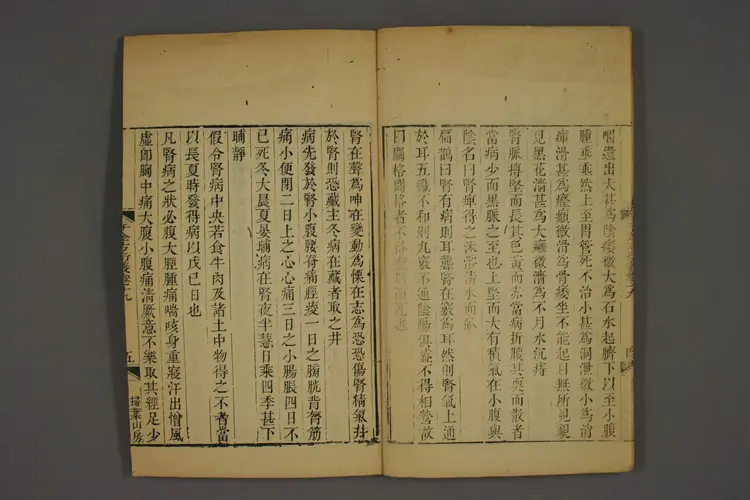 咽還出大甚為陰痿微大為石水起臍下以至小腹
腫垂垂然上至胃管死不治小甚為洞泄微小為消
癉滑甚為癃癩微滑為骨痿坐不能起目無所見視
見黑花濇甚為大癰微濇為不月水沉痔
腎脈搏堅而長其色黃而赤當病折腰其耎而散者
當病少血黑脈之至也上堅而大有積氣在小腹與
陰名曰腎痺得之沐浴清水而臥
扁鵲曰腎有病則耳聾腎在竅為耳然則腎氣上通
於耳五藏不和則九竅不通陰陽俱盛不得相營故
曰關格關格者不得盡期而死也
腎在聲為呻在變動為慄在志為恐恐傷腎精氣并
於腎則恐藏主冬病在藏者取之井
病先發於腎小腹腰脊痛脛痠一日之膀胱背膂筋
痛小便閉二日上之心心痛三日之小腸脹四日不
已死冬大晨夏晏晡病在腎夜半慧日乘四季甚下
晡靜
假令腎病中央若食牛肉及諸土中物得之不者當
以長夏時發得病以戊己日也
凡腎病之狀必腹大脛腫痛喘咳身重寢汗出憎風
虛即胸中痛大腹小腹痛清厥意不樂取其經足少
千金方衍義卷十九
五
掃葉山房